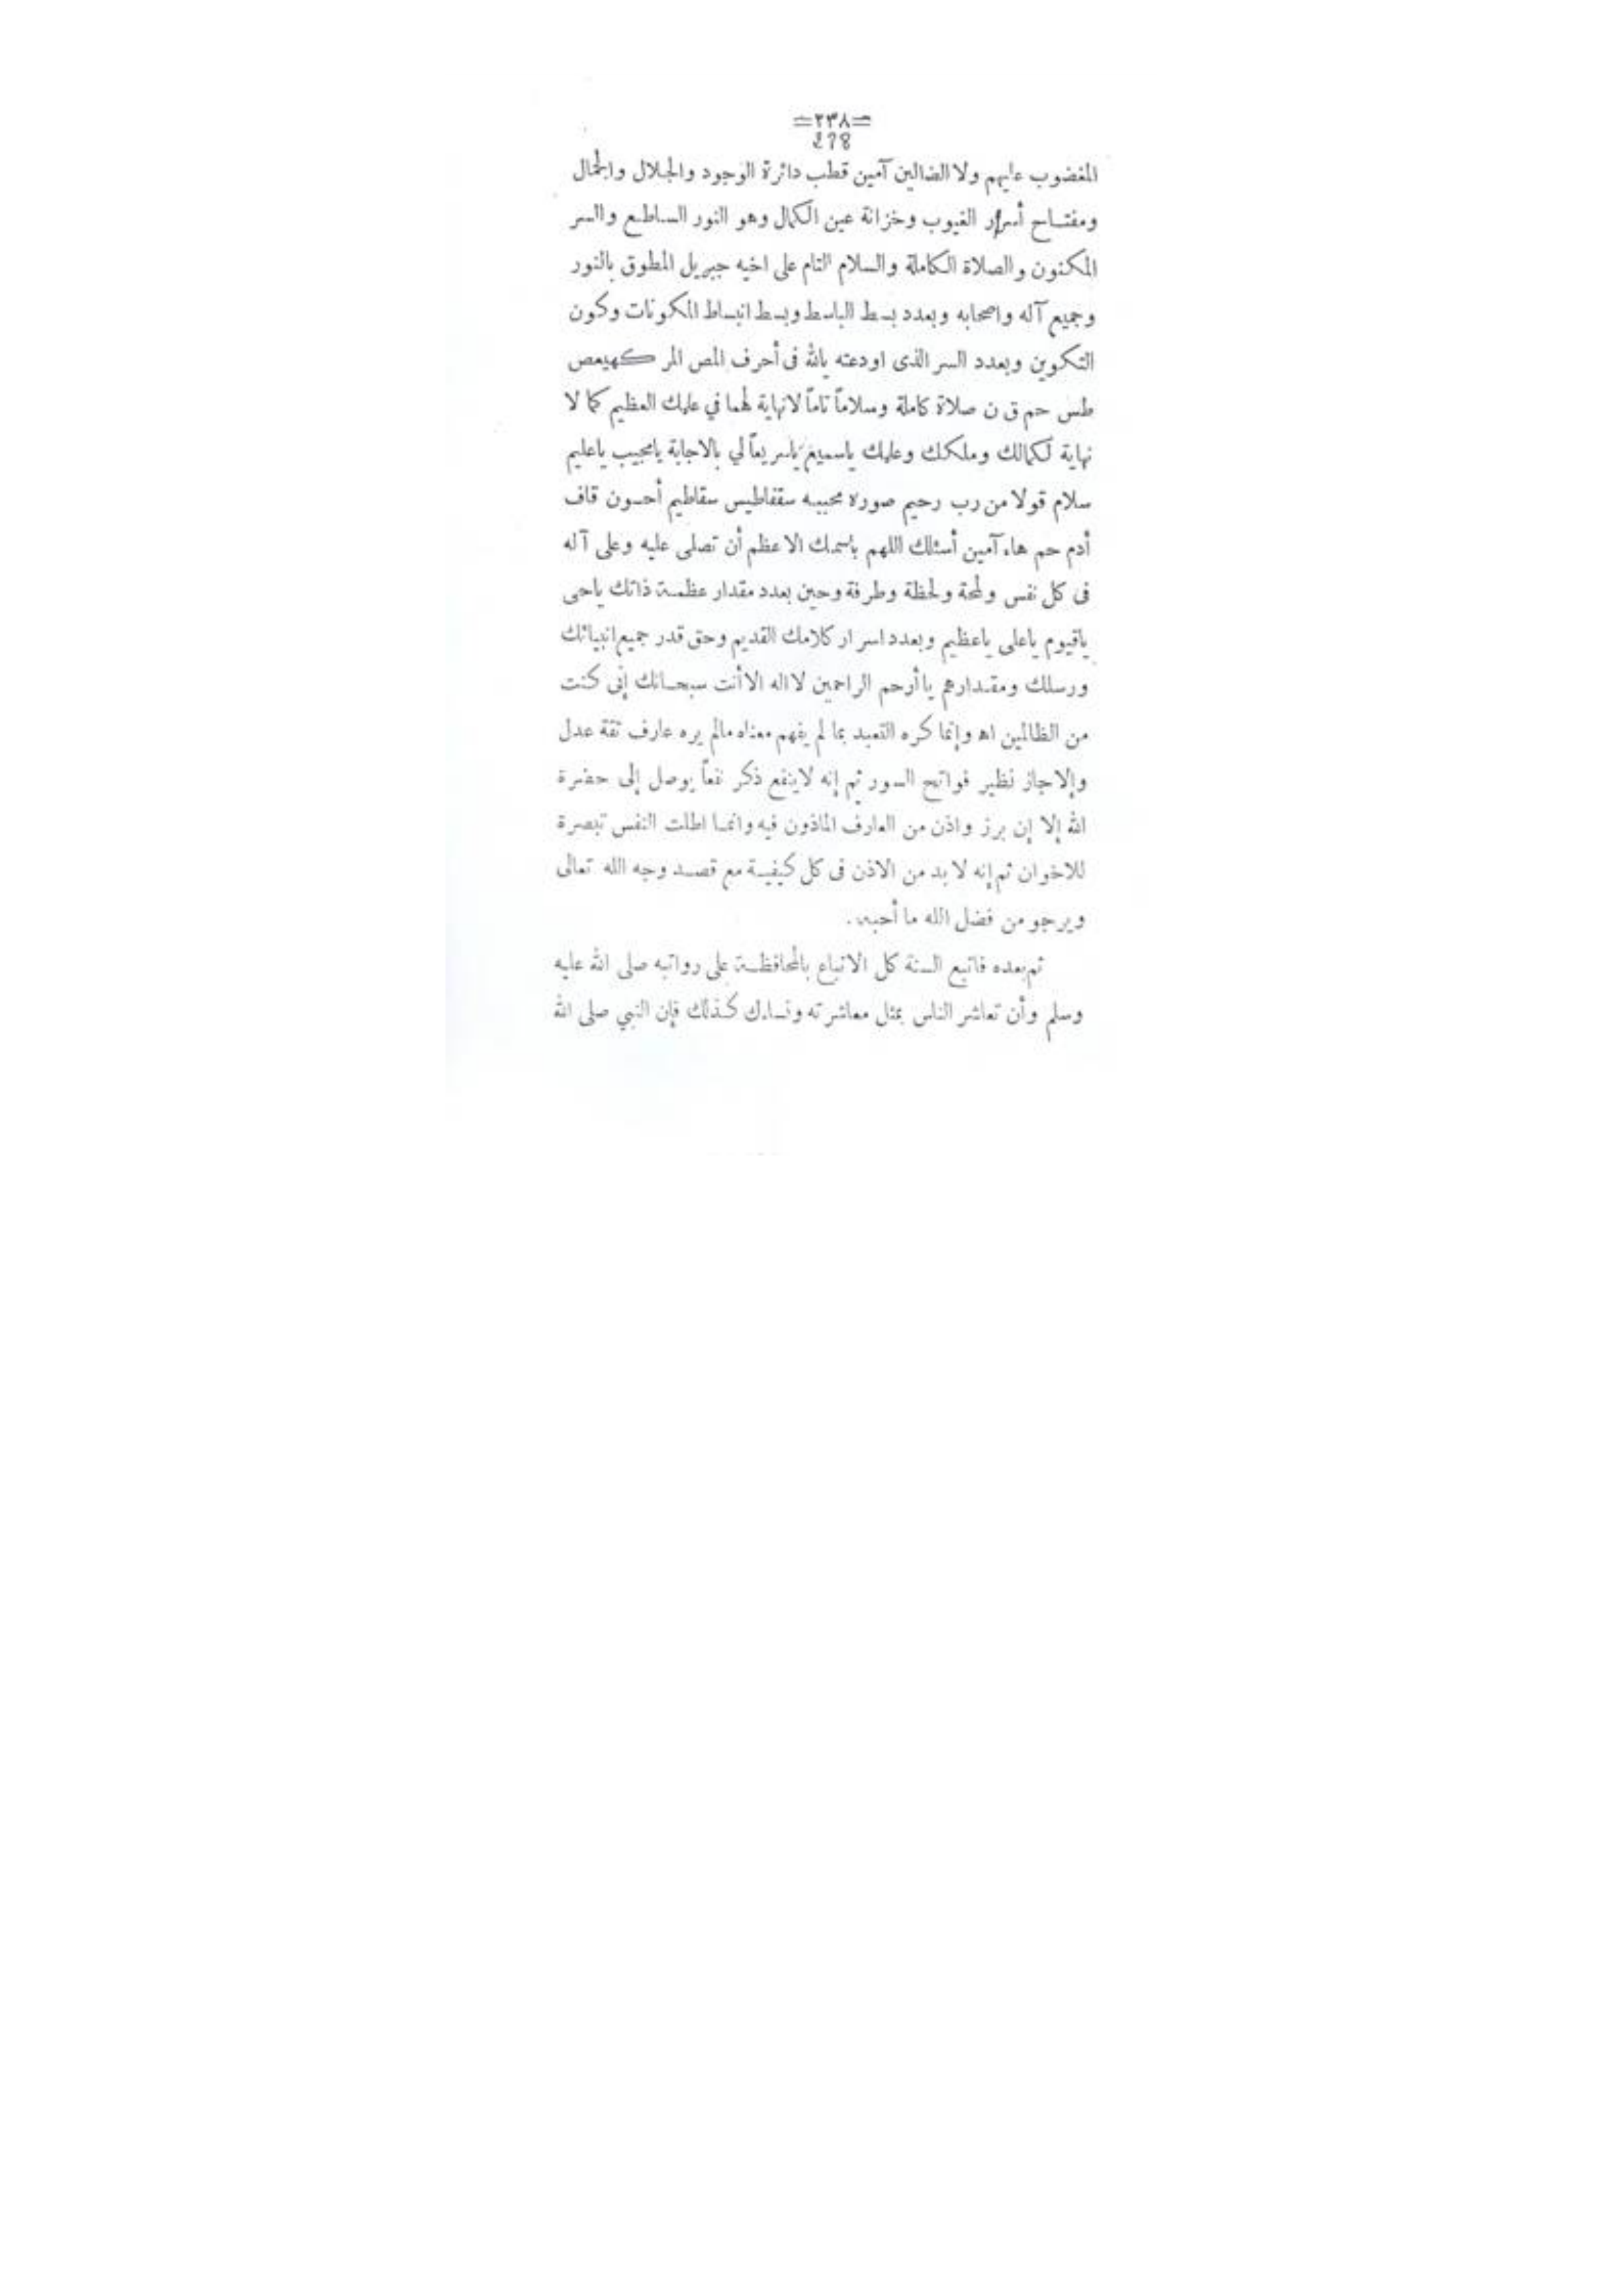 =٢٣٨=
المغضوب عليهم ولا الضالين آمين قطب دائرة الوجود والجلال والجمال
ومفتاح أسرار الغيوب وخزانة عين الكمال وهو النور الساطع والسر
المكنون والصلاة الكاملة والسلام التام على اخيه جبريل المطوق بالنور
وجميع آله واصحابه وبعدد بسط الباسط وبسط انبساط المكونات وكون
التكوين وبعدد السر الذى اودعته ياالله فى أحرف المص المر كهيعص
طس حم ق ن صلاة كاملة وسلاماً تاماً لانهاية لهما في علمك العظيم كما لا
نهاية لكمالك وملكك وعلمك ياسميع ياسريعاً لي بالاجابة يامجيب ياعليم
سلام قولا من رب رحيم صوره محببه سقفاطيس سقاطيم أحسون قاف
أدم حم هاء آمين أسئلك اللهم باسمك الاعظم أن تصلى عليه وعلى آله
فى كل نفس ولمحة ولحظة وطرفة وحين بعدد مقدار عظمة ذاتك ياحى
ياقيوم ياعلى ياعظيم وبعدد اسرار كلامك القديم وحق قدر جميع انبيائك
ورسلك ومقدارهم ياأرحم الراحمين لااله الاأنت سبحانك إنى كنت
من الظالمين اه وإنما كره التعبد بما لم يفهم معناه مالم يره عارف ثقة عدل
وإلا جاز نظير فواتح السور ثم إنه لاينفع ذكر نفعاً يوصل إلى حضرة
الله إلا إن برز واذن من العارف الماذون فيه وانما اطلت النفس تبصرة
للاخوان ثم إنه لا بد من الاذن فى كل كيفية مع قصد وجه الله تعالى
ويرجو من فضل الله ما أحبه.
ثم بعده فاتبع السنة كل الاتباع بالمحافظة على رواتبه صلى الله عليه
وسلم وأن تعاشر الناس بمثل معاشرته ونساءك كذلك فإن النبي صلى الله